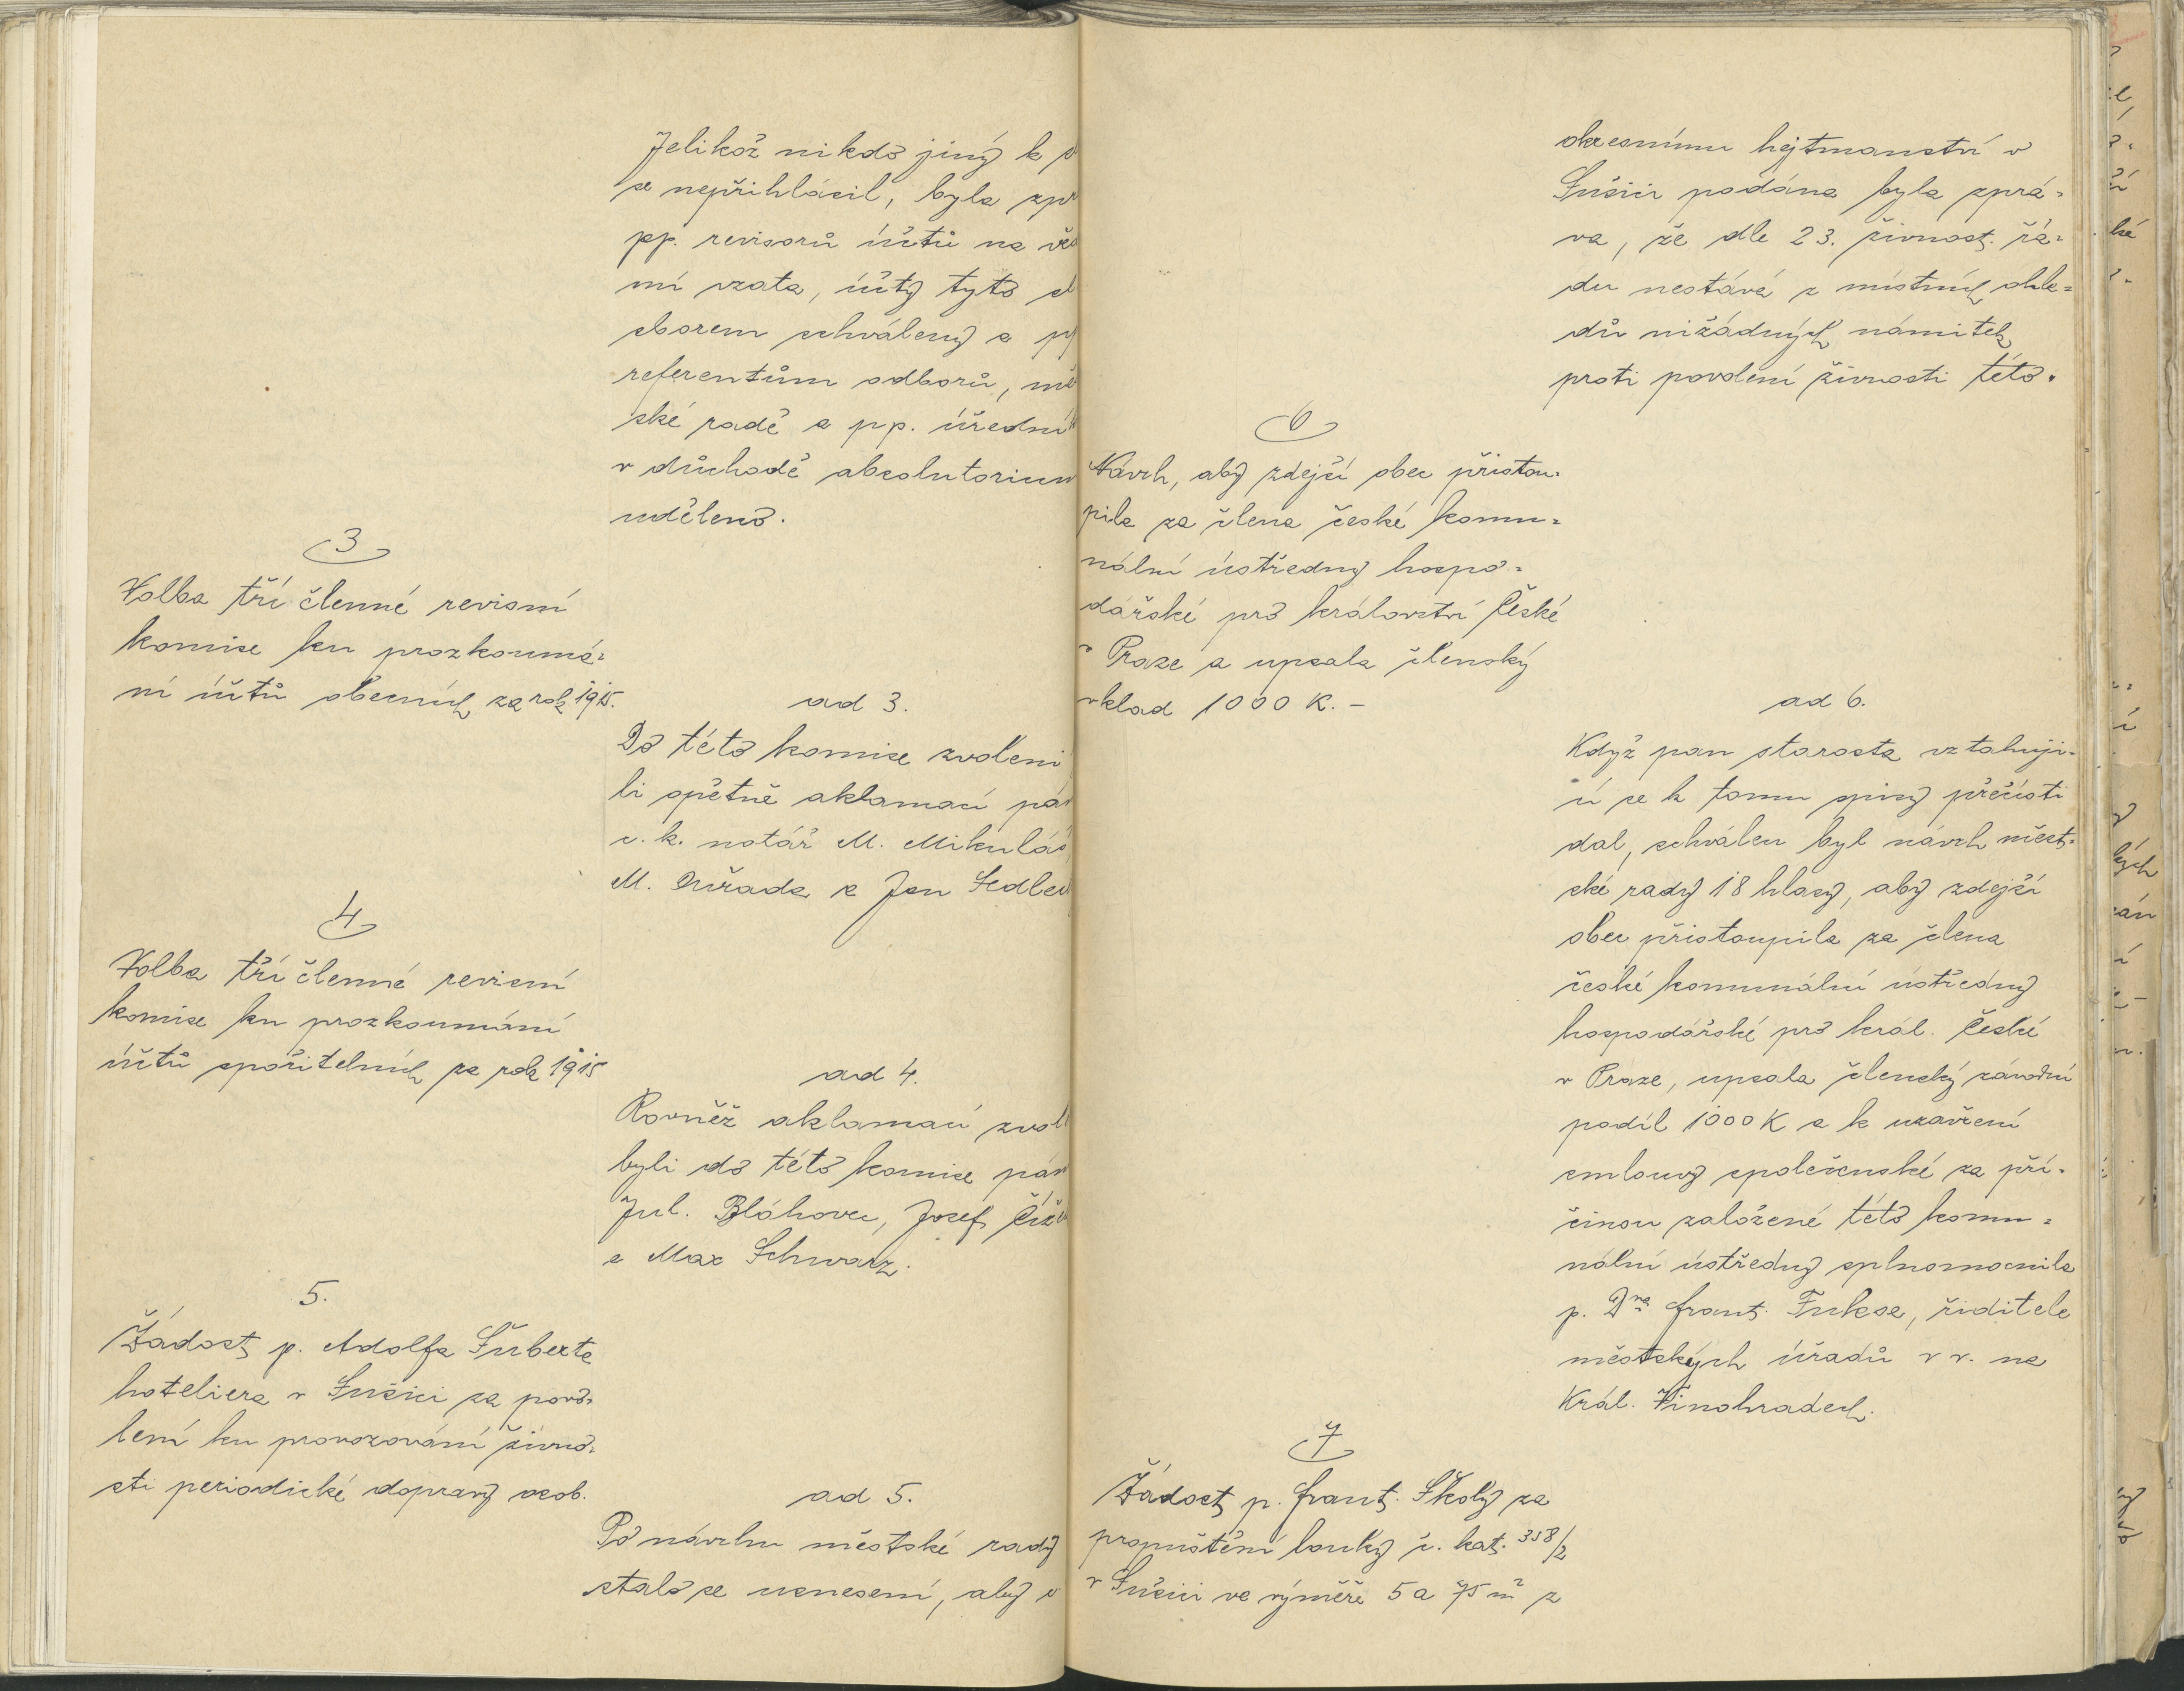 Jelikož nikdo jiný k
se nepřihlásil, byla
pp. revisorů účtů na
mí vzata, účty tyto
sborem schváleny a
referentům odborů,
ské radě a pp.
v důchodě absolutorium
uděleno.
3
Volba tří členné revisní
komise ku prozkoumá=
ní účtů obecních za rok 1915.
ad 3.
Do této komise zvoleni
li opětně aklamací
c. k. notář M. Mikuláš
M. a Jan
4
Volba tří členné revisní
komise ku prozkoumání
účtů spořitelních za rok 1915
ad 4.
Rovněž aklamací
byli do této komise
Jul. Bláhovec, Josef
a Max Schwarz.
5.
Žádost p. Adolfa Šuberta
hoteliera v Sušici za povo=
lení ku provozování živno=
sti periodické dopravy osob.
ad 5.
Po návrhu městské rady
stalo se usnesení, aby
okresnímu hejtmanství v
Sušici podána byla zprá=
va, že dle 23. živnost. řá=
du nestává z místních ohle=
dů nižádných námitek
proti povolení živnosti této.
6
Návrh, aby zdejší obec přistou=
pila za člena české komu=
nální ústředny hospo=
dářské pro království České
v Praze a upsala členský
vklad 1000 K. -
ad 6.
Když pan starosta vztahují=
cí se k tomu spisy přečísti
dal, schválen byl návrh měst=
ské rady 18 hlasy, aby zdejší
obec přistoupila za člena
české komunální ústředny
hospodářské pro král. České
v Praze, upsala členský závodní
podíl 1000 K a k uzavření
smlouvy společenské za pří=
činou založené této komu=
nální ústředny splnomocnila
p. Dra Frant. Fuksa, řiditele
městských úřadů v v. na
Král. Vinohradech.
7
Žádost p. Frant. Školy za
propuštění louky č. kat. 358/2
v Sušici ve výměře 5 a 75 m² z